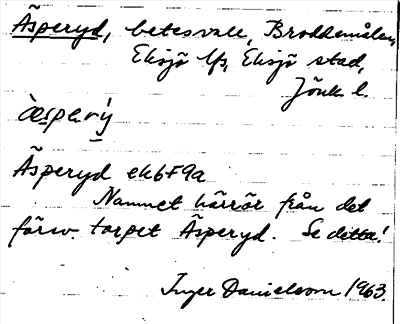 Äsperyd, betesvall, Broddamålen,
Eksjö lfs, Eksjö stad,
Jönk. l.
Äsperyd ek6F9a
Namnet härrör från det
försv. torpet Äsperyd. Se detta!
Inger Danielsson 1963.